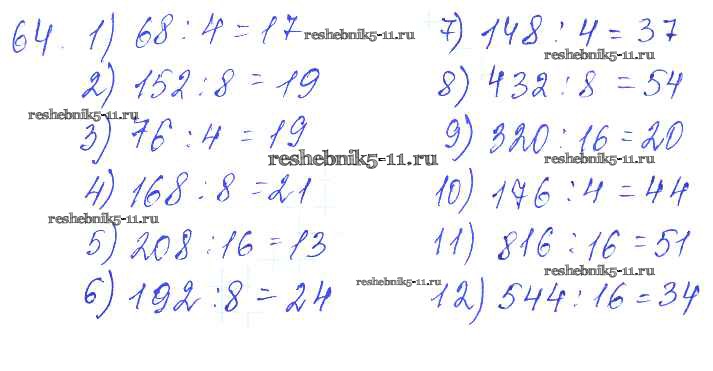 64. 1) 68 : 4 = 17 reshebnik5-11.ru
2) 152 : 8 = 19
reshebnik5-11.ru
3) 76 : 4 = 19
reshebnik5-11.ru
4) 168 : 8 = 21
reshebnik5-11.ru
5) 208 : 16 = 13
6) 192 : 8 = 24
reshebnik5-11.ru
7) 148 : 4 = 37
reshebnik5-11.ru
8) 432 : 8 = 54
9) 320 : 16 = 20
reshebnik5-11.ru
10) 176 : 4 = 44
11) 816 : 16 = 51
reshebnik5-11.ru
12) 544 : 16 = 34